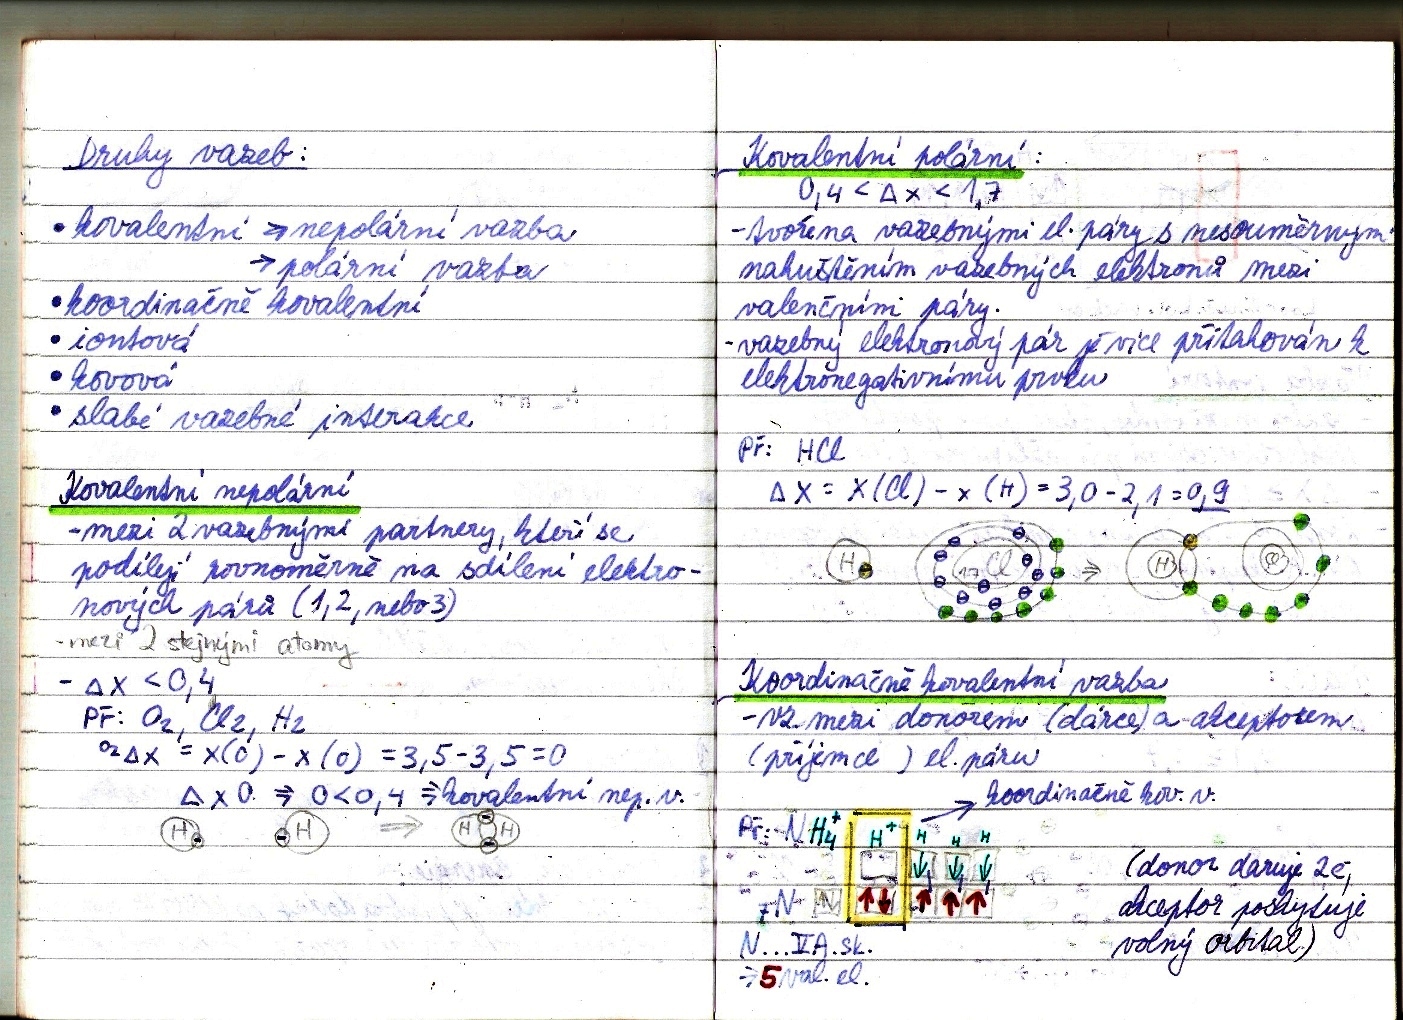 Druhy vazeb:
• kovalentní ⇒ nepolární vazba
→ polární vazba
• koordinačně kovalentní
• iontová
• kovová
• slabé vazebné interakce
Kovalentní nepolární
- mezi 2 vazebnými partnery, kteří se
podílejí rovnoměrně na sdílení elektro-
nových párů (1, 2, nebo 3)
- mezi 2 stejnými atomy
- Δx < 0,4
PŘ: O₂, Cl₂, H₂
O₂ Δx = x(O) - x(O) = 3,5 - 3,5 = 0
Δx 0 ⇒ 0 < 0,4 ⇒ kovalentní nep. v.
H H ⇒ H H
Kovalentní polární:
0,4 < Δx < 1,7
- tvořena vazebnými el. páry s nesouměrným
nahuštěním vazebných elektronů mezi
valenčními páry.
- vazebný elektronový pár je více přitahován k
elektronegativnímu prvku
PŘ: HCl
Δx = x(Cl) - x(H) = 3,0 - 2,1 = 0,9
H ₁₇Cl ⇒ H Cl
Koordinačně kovalentní vazba
- vz mezi donorem (dárce) a akceptorem
(příjemce) el. páru
→ koordinačně kov. v.
PŘ: NH₄⁺ H⁺ H H H
(donor daruje 2e,
₇N akceptor poskytuje
N...VA.sk. volný orbital)
→ 5 val. el.